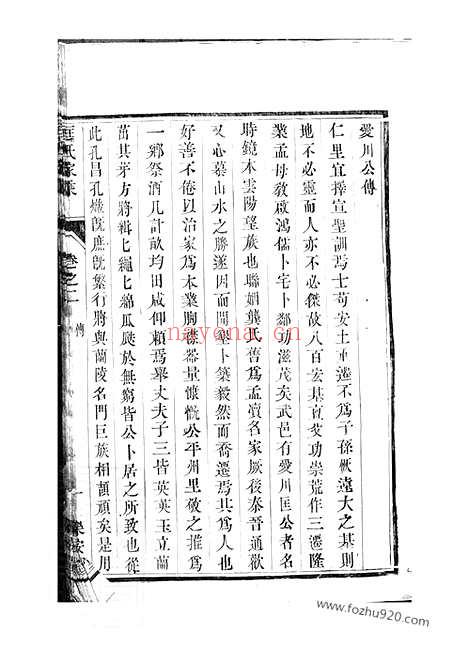 愛川公傳
仁里宜擇宣聖訓焉士苟安土重遷不爲子孫恢遠大之基則
地不必靈而人亦不必傑故八百宏基亶父功崇荒作三遷隆
業孟母敎啟鴻儒卜宅卜鄰功滋茂矣武邑有愛川匡公者名
時鏡本雲陽望族也聯姻龔氏舊爲孟瀆名家厥後秦晉通歡
又心慕山水之勝遂因而開築卜築毅然而喬遷焉其爲人也
好善不倦以治家爲本業胸襟器量慷慨公平州里敬之推爲
一鄉祭酒凡計畝均田咸仰賴焉舉丈夫子三皆英英玉立蘭
茁其芽方將緝匕繩匕綿瓜瓞於無窮皆公卜居之所致也從
此孔昌孔熾旣庶旣繁行將與蘭陵名門巨族相頡頏矣是用
匡氏家乘
卷之二
傳
一
樂
nayona.cn
www.fozhu920.com